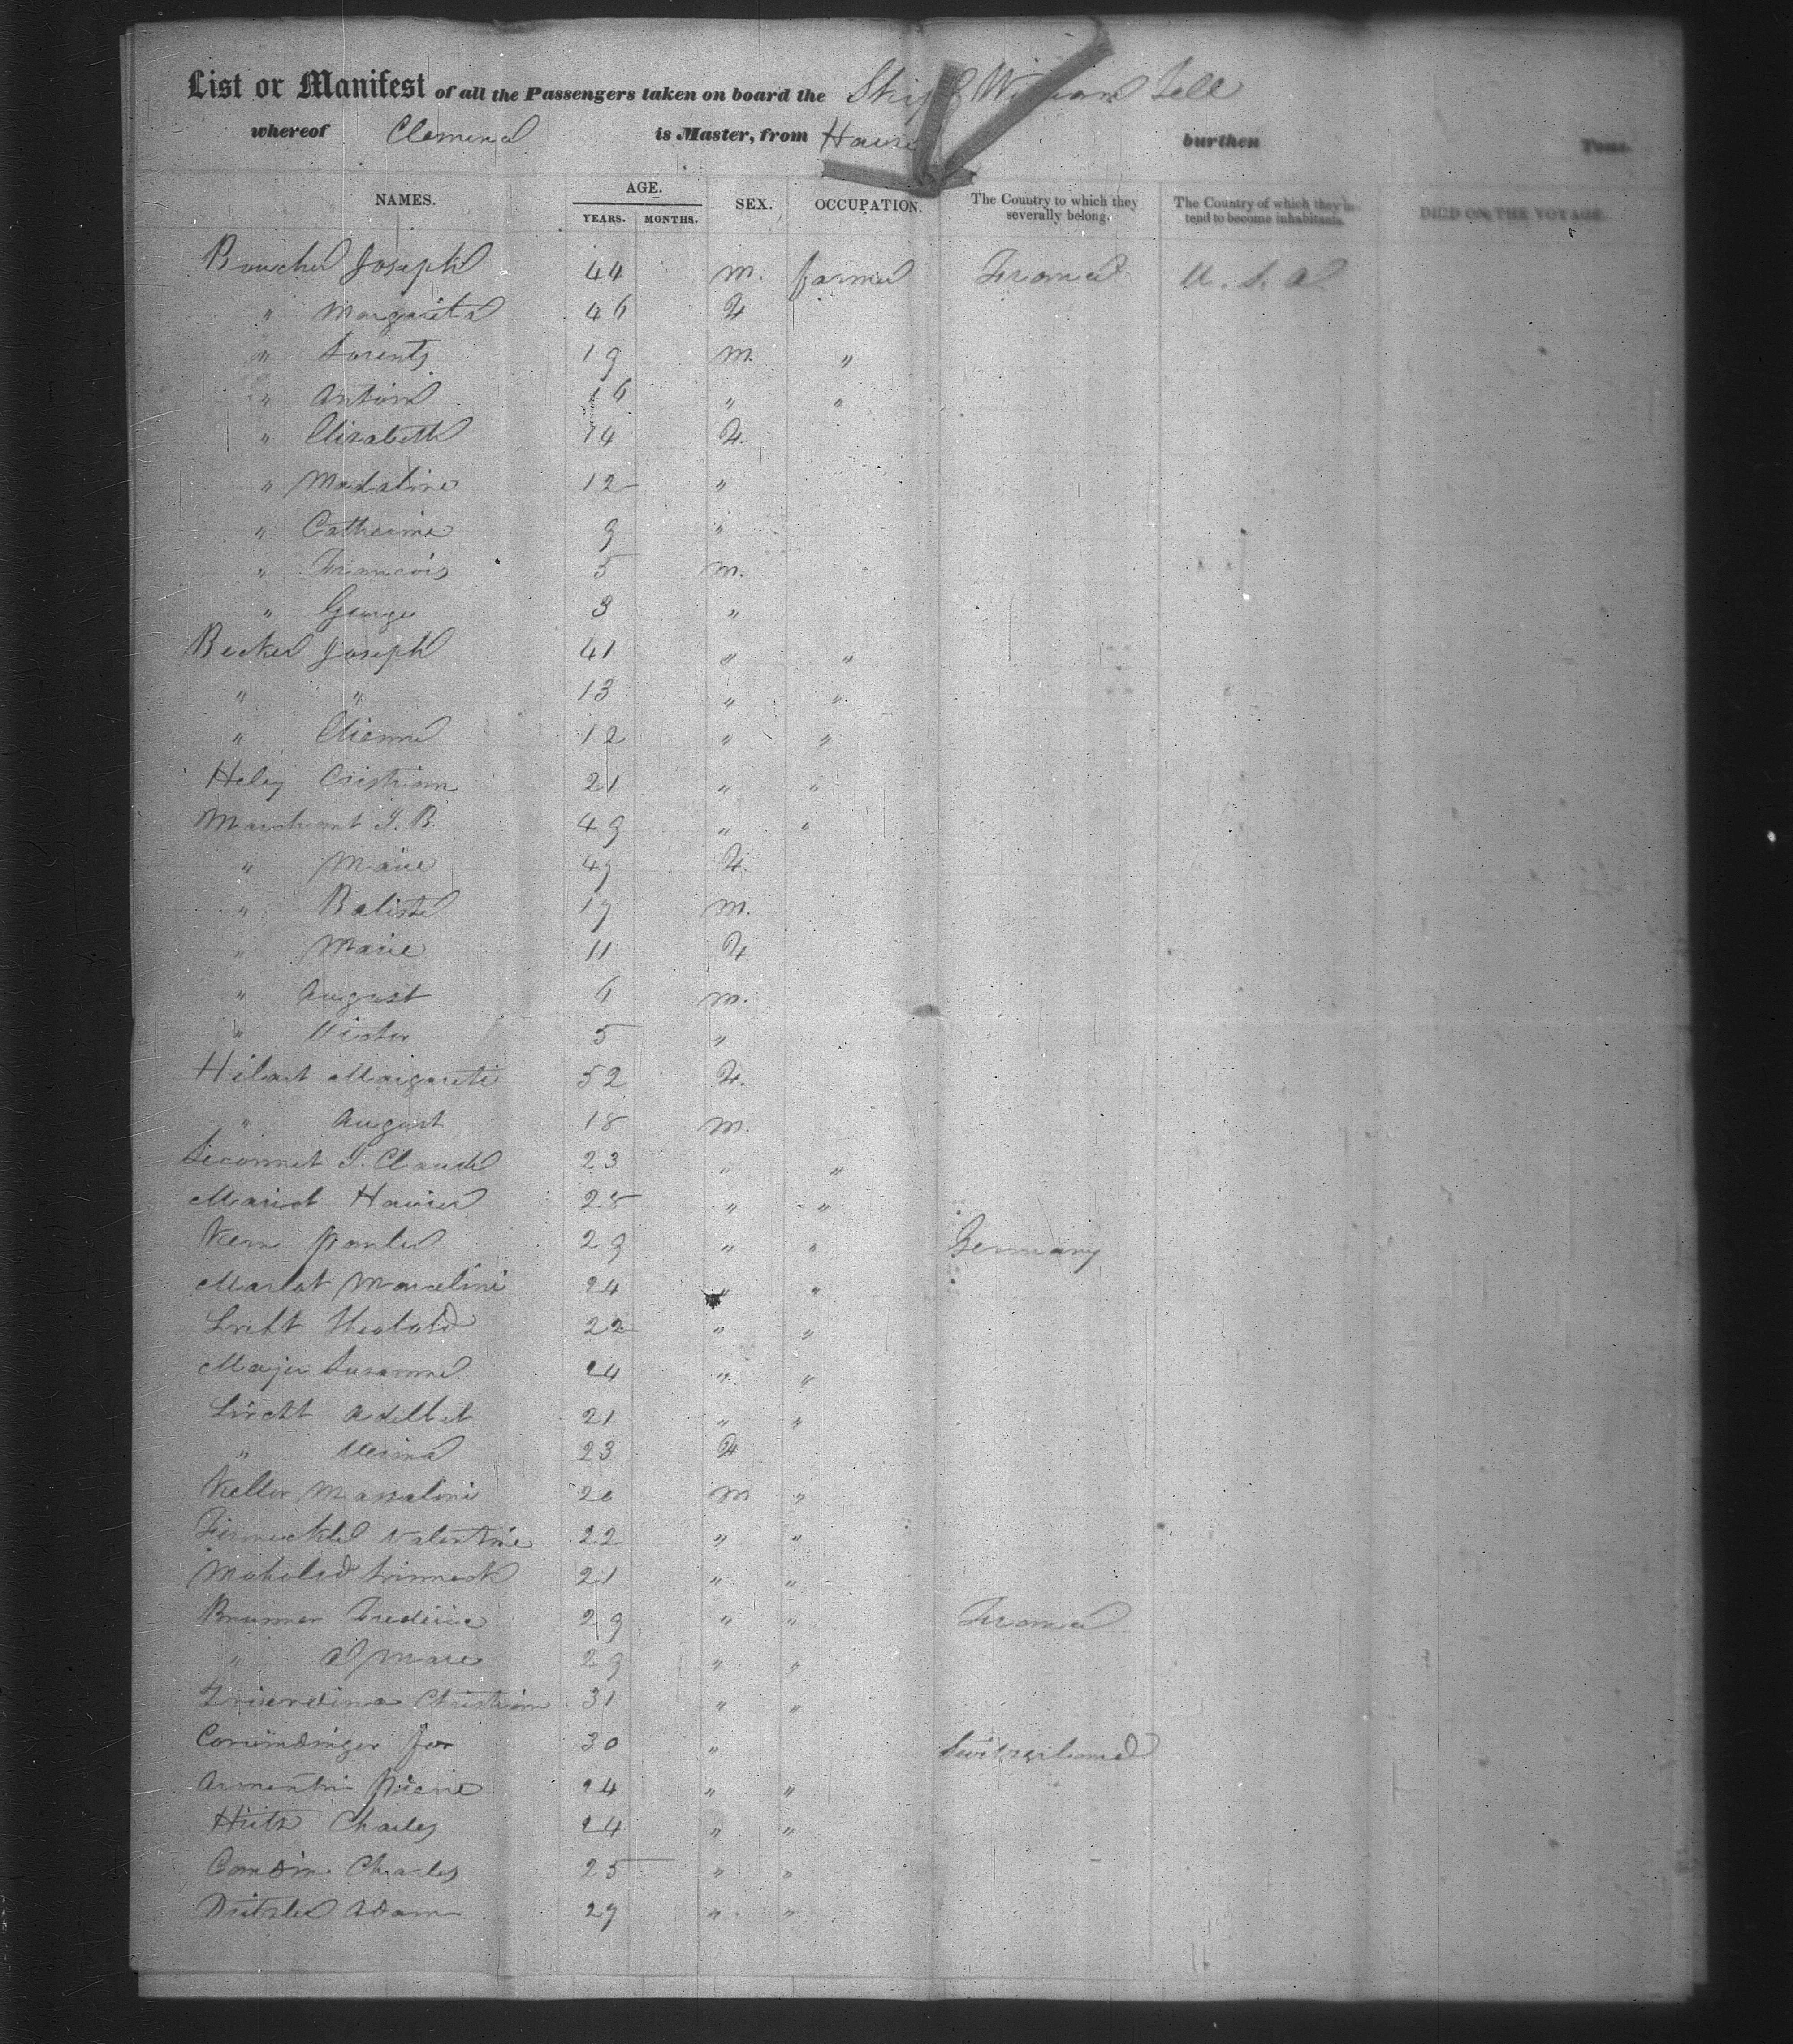 List or Manifest of all the Passengers taken on board the Ship William Tell
whereof Clemend is Master, from Havre burthen Tons.
NAMES. AGE. YEARS. MONTHS. SEX. OCCUPATION. The Country to which they severally belong. The Country of which they intend to become inhabitants. DIED ON THE VOYAGE.
Boucher Joseph 44 m. farmer France U. S. a.
" Margarita 46 F
" Lorentz 19 m. "
" Antoin 16 " "
" Elizabeth 14 F.
" Madaline 12 "
" Catherine 9 "
" Francois 5 m.
" George 3 "
Becker Joseph 41 " "
" " 13 " "
" Etienne 12 " "
Heley Cristian 21 " "
Marchant J. B. 49 " "
" Marie 49 F.
" Batiste 17 m.
" Marie 11 F
" August 6 m.
" Victor 5 "
Hilart Margareti 52 F.
" August 18 m.
J. Claude 23 " "
Mariot 28 " "
Kern 29 " " Germany
Marlot Marcelini 24 " "
Theobold 22 " "
Majer Susanne 24 " "
21 " "
" Verina 23 F
Keller 20 m "
Valentine 22 " "
21 " "
Brunner Frederic 29 " " France
" 29 " "
Christian 31 " "
30 " Switzerland
Pierre 24 " "
Charles 24 " "
Charles 25 " "
Adam 29 " "